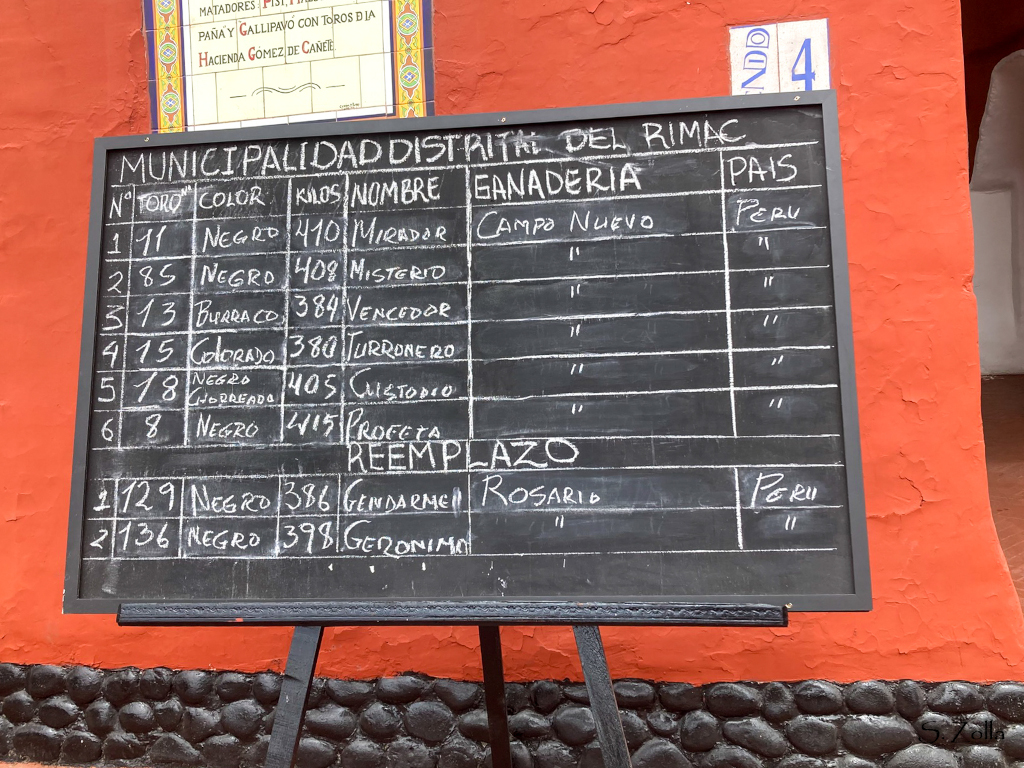 MATADORES
PAÑA Y GALLIPAVÓ CON TOROS D LA
HACIENDA GÓMEZ DE CAÑETE.
4
MUNICIPALIDAD DISTRITAL DEL RIMAC
Nº TORO Nº COLOR KILOS NOMBRE GANADERIA PAIS
1 11 NEGRO 410 MIRADOR CAMPO NUEVO PERU
2 85 NEGRO 408 MISTERIO " "
3 13 BURRACO 384 VENCEDOR " "
4 15 COLORADO 380 TURRONERO " "
5 18 NEGRO CHORREADO 405 CUSTODIO " "
6 8 NEGRO 415 PROFETA " "
REEMPLAZO
1 129 NEGRO 386 GENDARME ROSARIO PERU
2 136 NEGRO 398 GERONIMO " "
S. Zolla